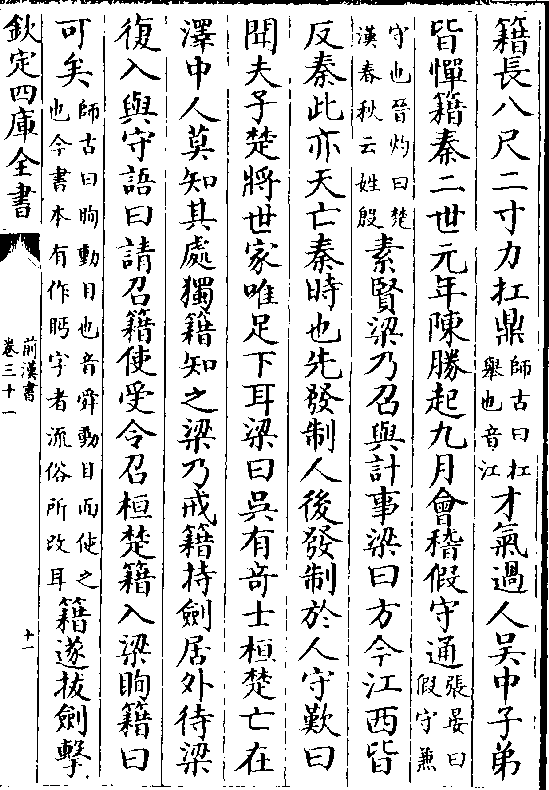 籍長八尺二寸力扛鼎師古曰扛舉也音江才氣過人吳中子弟
皆憚籍秦二世元年陳勝起九月會稽假守通張晏曰假守兼
守也晉灼曰楚漢春秋云姓殷素賢梁乃召與計事梁曰方今江西皆
反秦此亦天亡秦時也先發制人後發制於人守歎曰
聞夫子楚將世家唯足下耳梁曰吳有奇士桓楚亡在
澤中人莫知其處獨籍知之梁乃戒籍持劍居外待梁
復入與守語曰請召籍使受令召桓楚籍入梁眴籍曰
可矣師古曰眴動目也音舜動目而使之也今書本有作眄字者流俗所改耳籍遂拔劍擊
欽定四庫全書
前漢書
卷三十一
十一